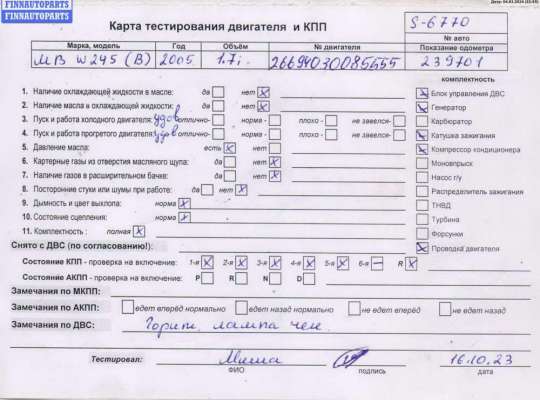 FINNAUTOPARTS
FINNAUTOPARTS
FINNAUTOPARTS
Карта тестирования двигателя и КПП
S-6770
№ авто
Марка, модель Год Объём № двигателя Показание одометра
MB W245 (B) 2005 1.7i 26694030085555 239701
комплектность
1. Наличие охлаждающей жидкости в масле: да нет
2. Наличие масла в охлаждающей жидкости: да нет
3. Пуск и работа холодного двигателя: удов отлично- норма - плохо - не завелся-
4. Пуск и работа прогретого двигателя: удов отлично- норма - плохо - не завелся-
5. Давление масла: есть нет
6. Картерные газы из отверстия масляного щупа: да нет
7. Наличие газов в расширительном бачке: да нет
8. Посторонние стуки или шумы при работе: да нет
9. Дымность и цвет выхлопа: норма
10. Состояние сцепления: норма
11. Комплектность : полная
Блок управления ДВС
Генератор
Карбюратор
Катушка зажигания
Компрессор кондиционера
Моновпрыск
Насос г/у
Распределитель зажигания
ТНВД
Турбина
Форсунки
Проводка двигателя
Снято с ДВС (по согласованию!):
Состояние КПП - проверка на включение: 1-я 2-я 3-я 4-я 5-я 6-я R
Состояние АКПП - проверка на включение: P R N D
Замечания по МКПП:
Замечания по АКПП: едет вперёд нормально едет назад нормально не едет вперёд не едет назад
Замечания по ДВС: Горит лампа чек
Тестировал: Миша 16.10.23
ФИО подпись дата